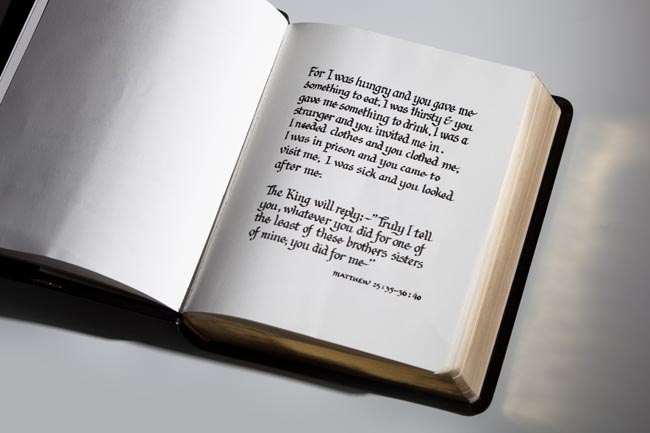 For I was hungry and you gave me
something to eat. I was thirsty & you
gave me something to drink, I was a
stranger and you invited me in.
I needed clothes and you clothed me;
I was in prison and you came to
visit me, I was sick and you looked
after me.
The King will reply:-"Truly I tell
you, whatever you did for one of
the least of these brothers sisters
of mine; you did for me."
MATTHEW 25:35-36:40